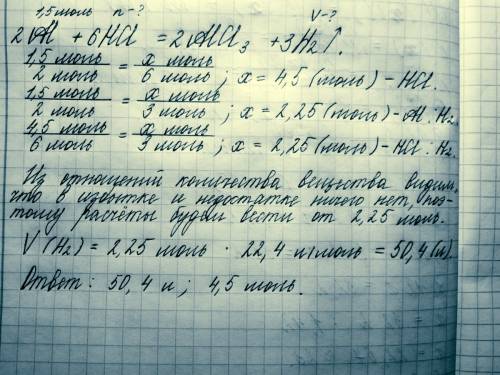 1,5 моль n-? V-?
2Al + 6HCl = 2AlCl₃ + 3H₂↑.
1,5 моль / 2 моль = x моль / 6 моль ; x = 4,5 (моль) - HCl.
1,5 моль / 2 моль = x моль / 3 моль ; x = 2,25 (моль) - Al : H₂
4,5 моль / 6 моль = x моль / 3 моль ; x = 2,25 (моль) - HCl : H₂.
Из отношений количества вещества видим,
что в избытке и недостатке ничего нет, поэ-
тому расчеты будем вести от 2,25 моль.
V (H₂) = 2,25 моль · 22,4 л/моль = 50,4 (л).
Ответ: 50,4 л ; 4,5 моль.